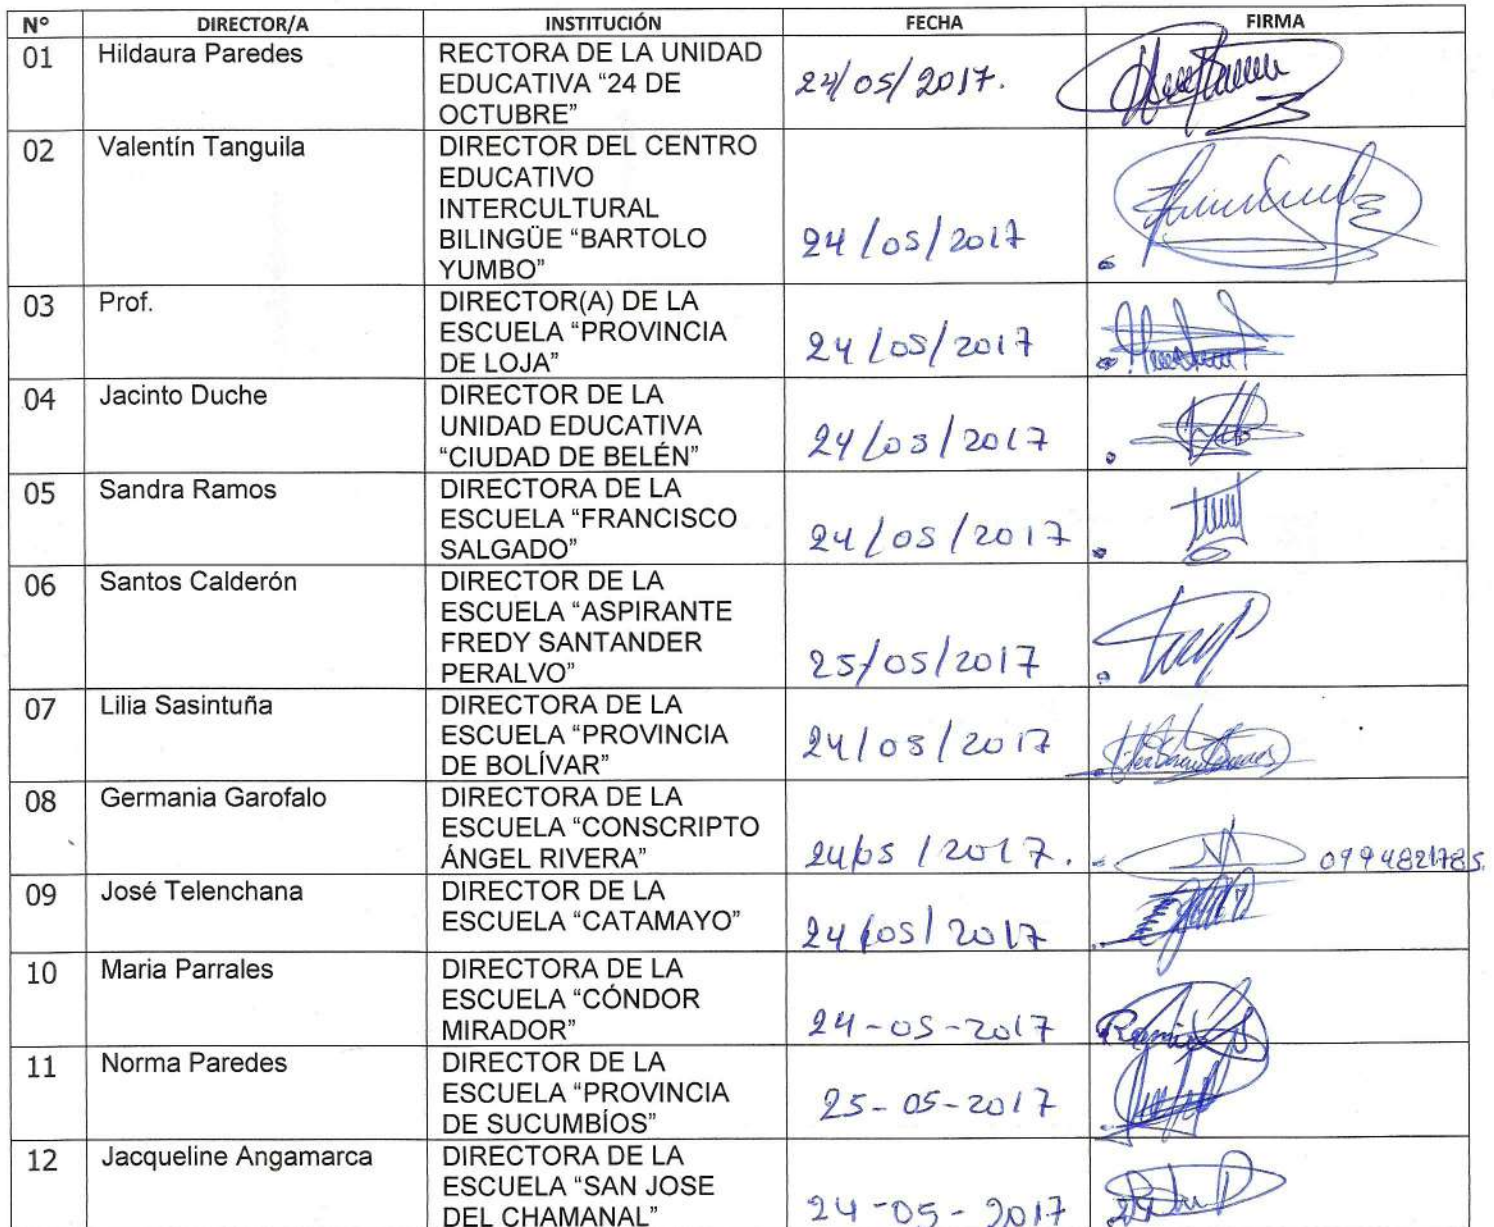 N° DIRECTOR/A INSTITUCIÓN FECHA FIRMA
01 Hildaura Paredes RECTORA DE LA UNIDAD
EDUCATIVA “24 DE
OCTUBRE”
24/05/2017.
02 Valentín Tanguila DIRECTOR DEL CENTRO
EDUCATIVO
INTERCULTURAL
BILINGÜE “BARTOLO
YUMBO”
24/05/2017
03 Prof. DIRECTOR(A) DE LA
ESCUELA “PROVINCIA
DE LOJA”
24/05/2017
04 Jacinto Duche DIRECTOR DE LA
UNIDAD EDUCATIVA
“CIUDAD DE BELÉN”
24/05/2017
05 Sandra Ramos DIRECTORA DE LA
ESCUELA “FRANCISCO
SALGADO”
24/05/2017
06 Santos Calderón DIRECTOR DE LA
ESCUELA “ASPIRANTE
FREDY SANTANDER
PERALVO”
25/05/2017
07 Lilia Sasintuña DIRECTORA DE LA
ESCUELA “PROVINCIA
DE BOLÍVAR”
24/05/2017
08 Germania Garofalo DIRECTORA DE LA
ESCUELA “CONSCRIPTO
ÁNGEL RIVERA”
24/05/2017. 0994821785
09 José Telenchana DIRECTOR DE LA
ESCUELA “CATAMAYO”
24/05/2017
10 Maria Parrales DIRECTORA DE LA
ESCUELA “CÓNDOR
MIRADOR”
24-05-2017
11 Norma Paredes DIRECTOR DE LA
ESCUELA “PROVINCIA
DE SUCUMBÍOS”
25-05-2017
12 Jacqueline Angamarca DIRECTORA DE LA
ESCUELA “SAN JOSE
DEL CHAMANAL”
24-05-2017